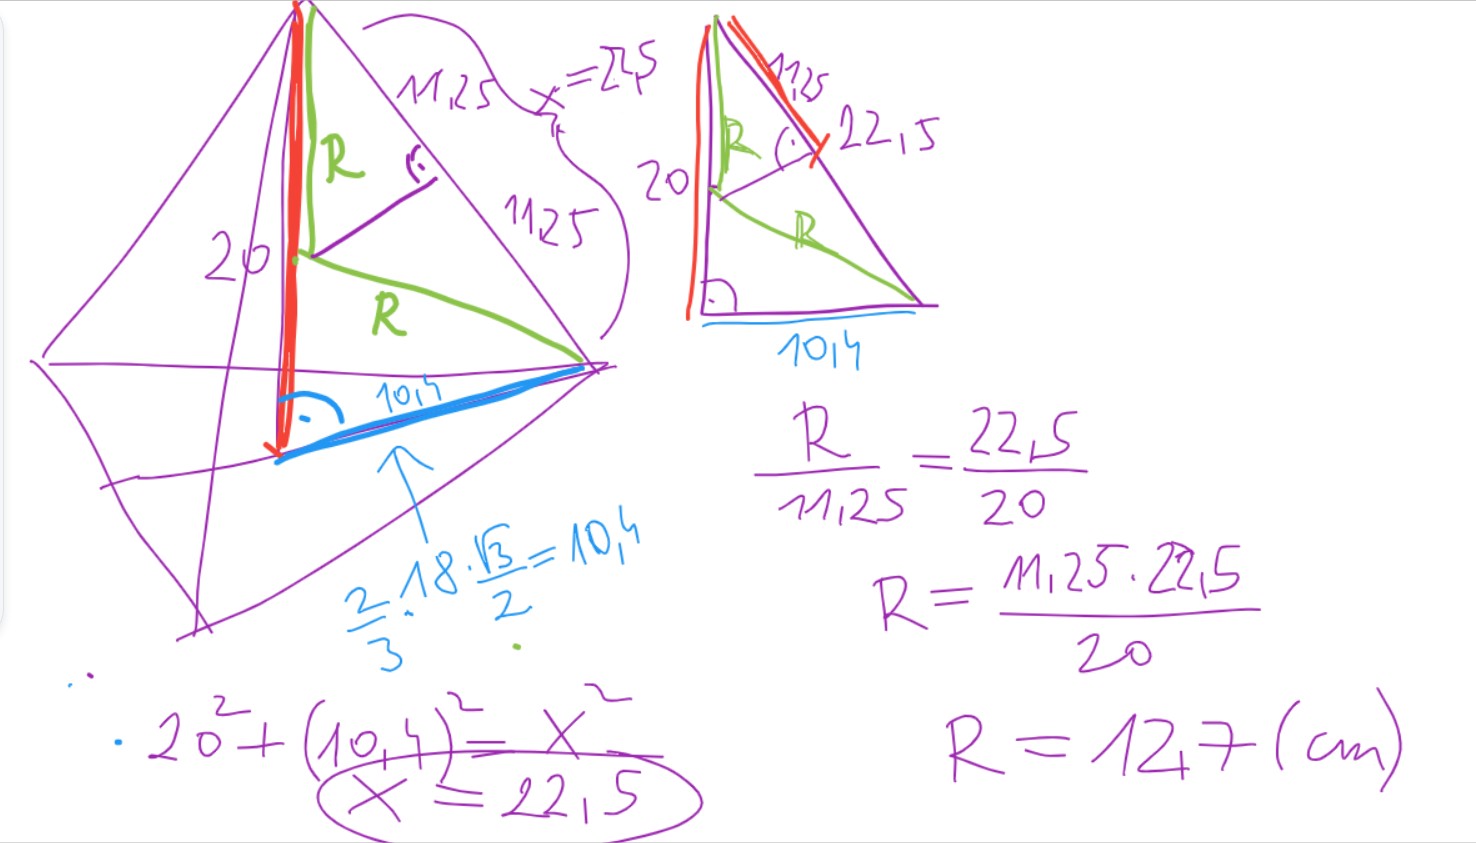 11,25
x = 22,5
R
20
11,25
R
10,4
2/3 · 18 · √3/2 = 10,4
20² + (10,4)² = x²
x = 22,5
11,25
22,5
R
20
R
10,4
R/11,25 = 22,5/20
R = 11,25 · 22,5/20
R = 12,7 (cm)